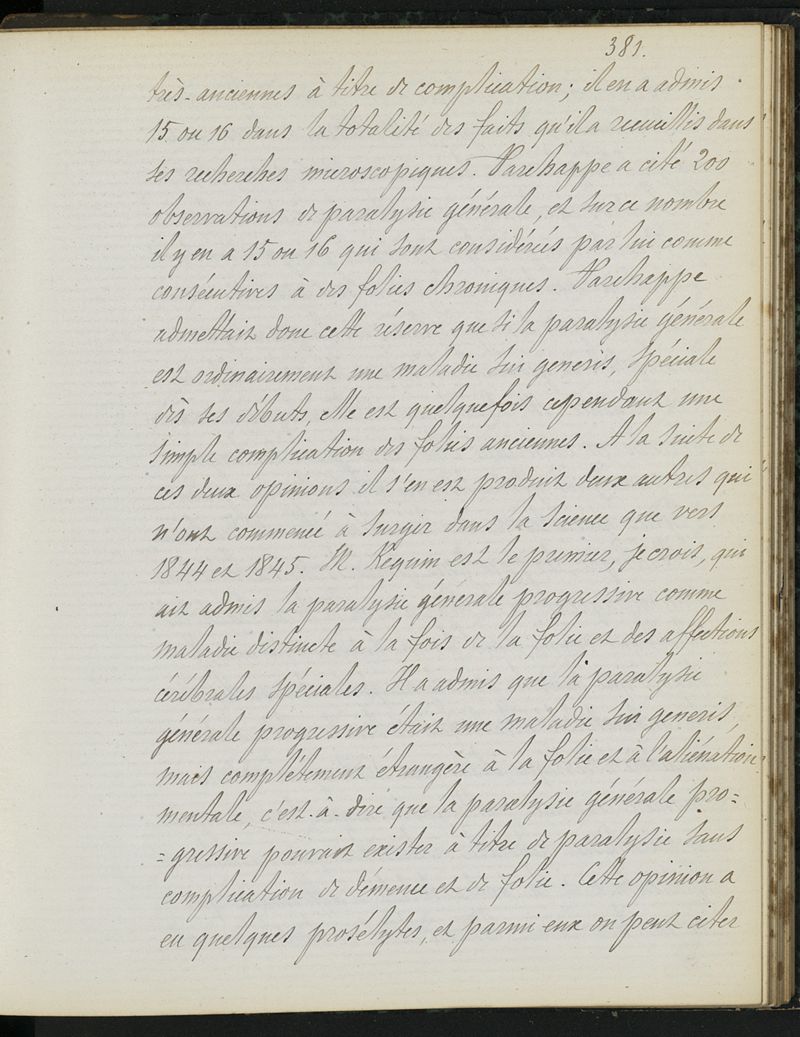 381.
très-anciennes à titre de complication; il en a admis
15 ou 16 dans la totalité des faits qu'il a recueillis dans
ses recherches microscopiques. Parchappe a cité 200
observations de paralysie générale, et sur ce nombre
il y en a 15 ou 16 qui sont considérés par lui comme
consécutives à des folies chroniques. Parchappe
admettait donc cette réserve que si la paralysie générale
est ordinairement une maladie sui generis, spéciale
dès ses débuts, elle est quelquefois cependant une
simple complication des folies anciennes. A la suite de
ces deux opinions il s'en est produit deux autres qui
n'ont commencé à surgir dans la science que vers
1844 et 1845. M. Requin est le premier, je crois, qui
ait admis la paralysie générale progressive comme
maladie distincte à la fois de la folie et des affections
cérébrales spéciales. Il a admis que la paralysie
générale progressive était une maladie sui generis,
mais complètement étrangère à la folie et à l'aliénation
mentale, c'est-à-dire que la paralysie générale pro=
=gressive pouvait exister à titre de paralysie sans
complication de démence et de folie. Cette opinion a
eu quelques prosélytes, et parmi eux on peut citer